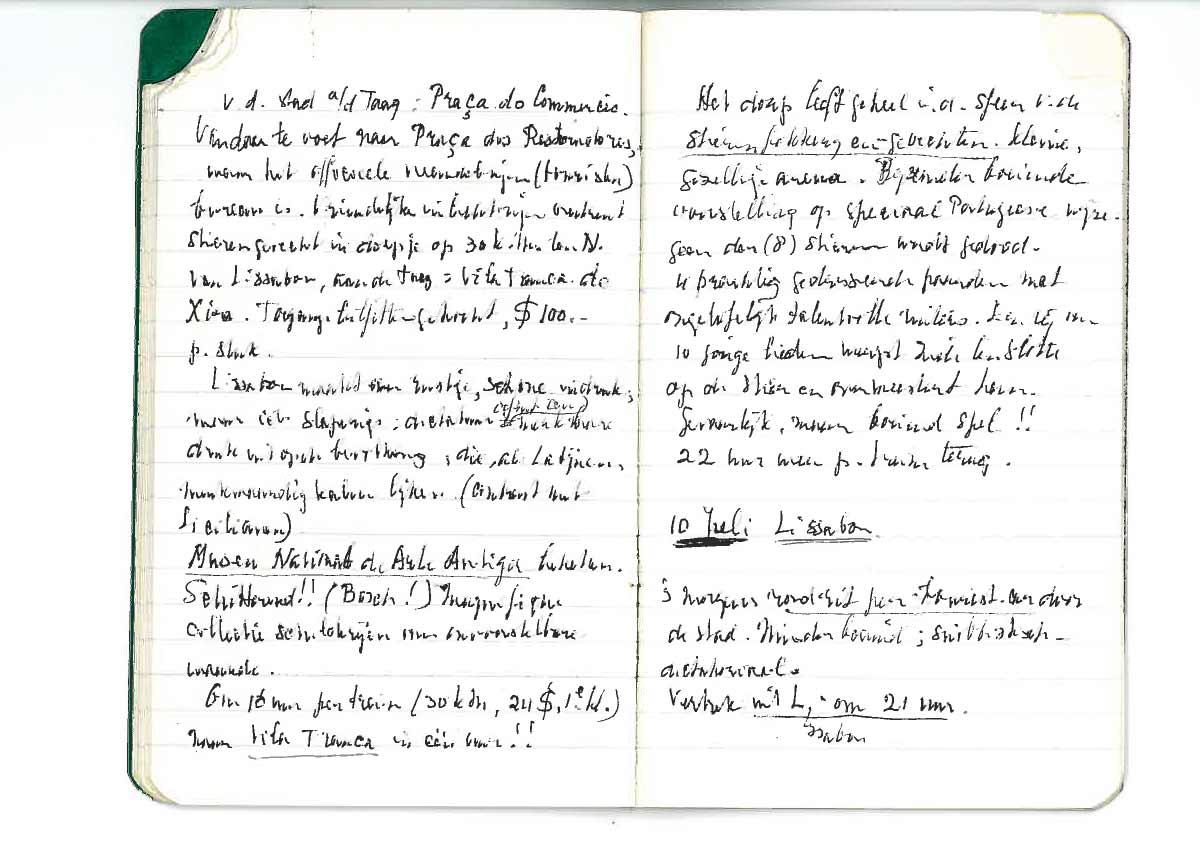 v.d. stad a/d Taag: Praça do Commercio.
Vandaar te voet naar Praça dos Restauradores,
waar het officieele (touristen)
bureau is. Vriendelijke inlichtingen omtrent
stierengevecht in dorpje op 30 k. ten N.
van Lissabon, aan de Taag = Vila Franca de
Xira. Toegangsbiljetten gekocht, $ 100.-
p. stuk.
Lissabon maakt een rustige, schone indruk;
maar iets slaperigs:
druk v/d openb. bevolking, die, als Latijnen,
kalm lijken. (Contrast met
Sicilianen)
Museu National de Arte Antiga bekeken.
Schitterend!! (Bosch!) Magnifique
collectie schilderijen van onvoorstelbare
waarde.
Om 18 uur per trein (30 km, 24 $, 1e kl.)
naar Vila Franca in één uur!!
Het dorp leeft geheel i.d. sfeer v.de
stierenfokkerij en -gevechten. Kleine,
gezellige arena. Bijzonder boeiende
voorstelling op speciaal Portugese wijze.
geen der (8) stieren wordt gedood.
4 prachtig gedresseerde paarden met
ongelofelijk talentvolle ruiters. Een rij van
10 jonge lieden werpt zich tenslotte
op de stier en overmeestert hem.
Gevaarlijk, maar boeiend spel!!
22 uur weer p. trein terug.
10 Juli Lissabon
's morgens rondrit per Tourist-car door
de stad. Minder boeiend;
Vertrek uit L, - om 21 uur.
issabon